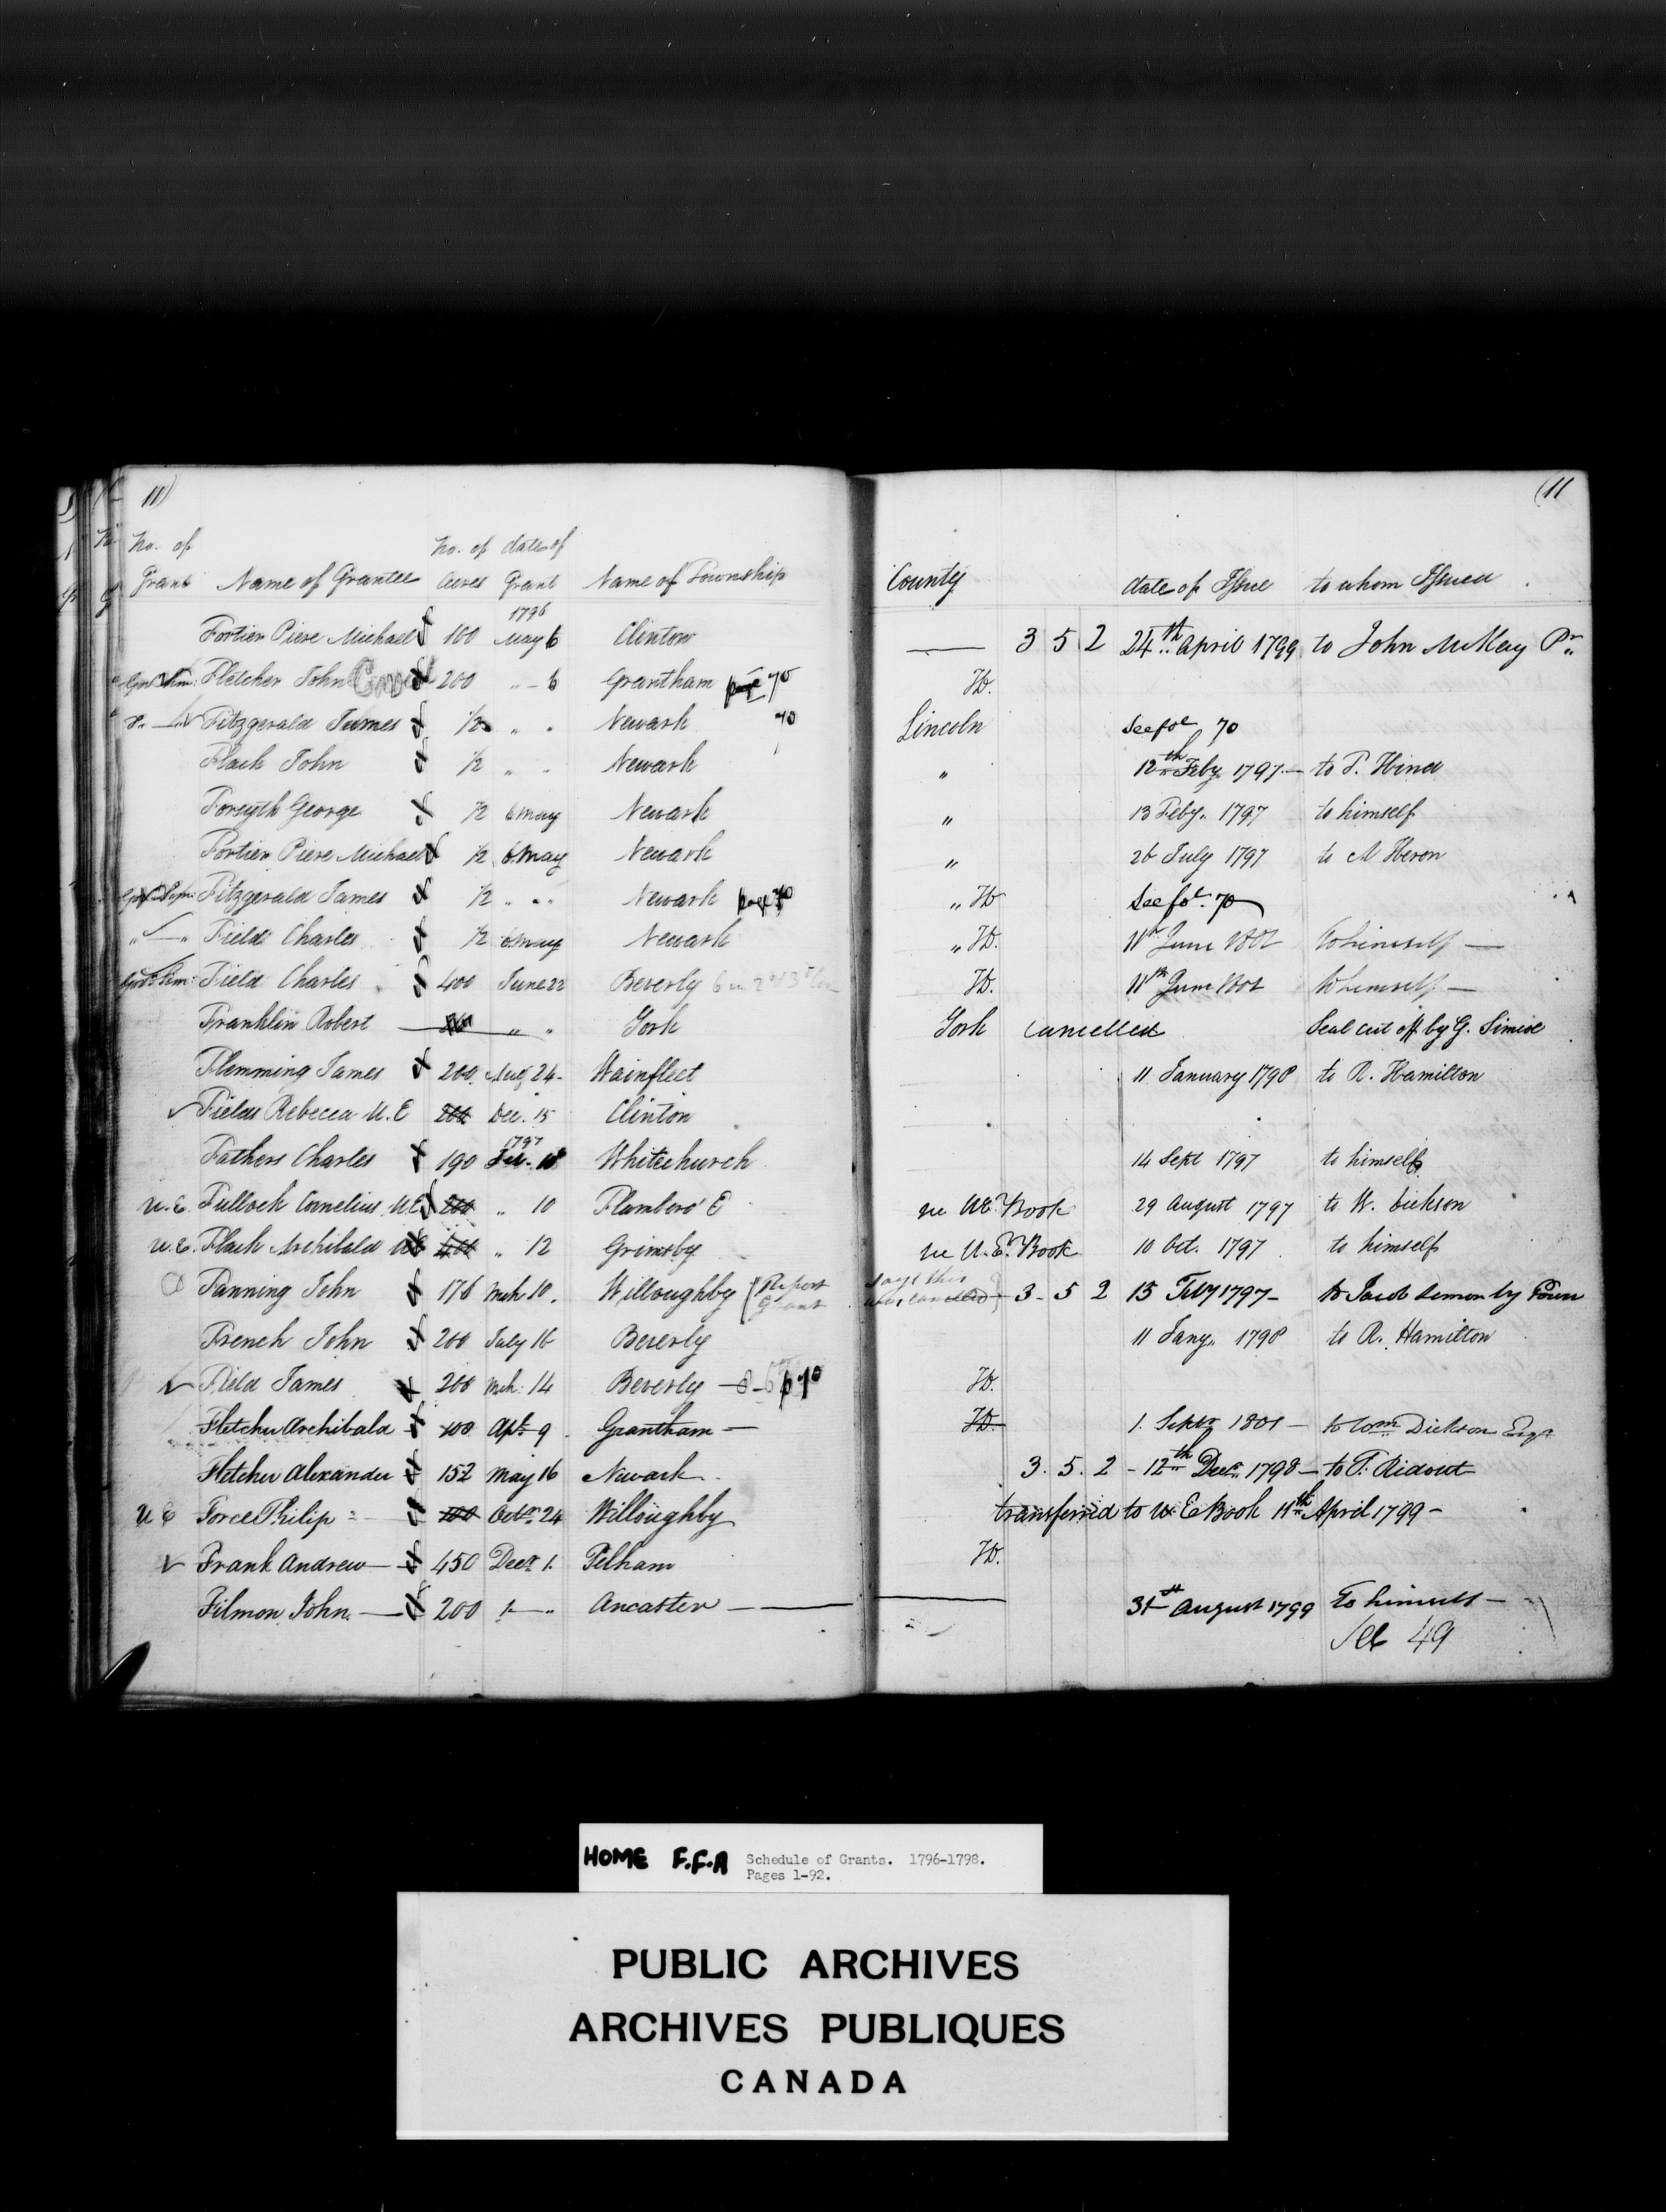 11) (11
No. of No. of date of
Grant Name of Grantee Acres Grant Name of Township County date of Issue to whom Issued
1796
Fortier Piere Michael 100 May 6 Clinton 3 5 2 24th April 1799 to John McKay Pr
Fletcher John 200 " - 6 Grantham page 70 HD.
Fitzgerald James 1/2 " " Newark 70 Lincoln See fol 70
Flack John 1/2 " " Newark " 12th Feby 1797 to P. Hind
Forsyth George 1/2 6 May Newark " 13 Feby. 1797 to himself
Fortier Piere Michael 1/2 6 May Newark " 26 July 1797 to M Heron
Fitzgerald James 1/2 " " Newark page 70 " HD See fol. 70
Field Charles 1/2 6 May Newark " HD. 11th June 1801 to himself
Field Charles 400 June 22 Beverly HD. 11th June 1801 to himself
Franklin Robert " " York York Cancelled Seal cut off by G.
Flemming James 200 Aug 24 Wainfleet 11 January 1798 to R. Hamilton
Fields Rebecca U.E 200 Dec. 15 Clinton
1797
Fathers Charles 190 Whitechurch 14 Sept 1797 to himself
U.E. Fullock Cornelius U.E 200 " 10 Flamboro' E in UE. Book 29 August 1797 to W. Dickson
U.E. Flack Archibald UE 400 " 12 Grimsby in U.E. Book 10 Oct. 1797 to himself
Fanning John 176 Mch 10. Willoughby (Report Grant says this was cancelled) 3 - 5 2 15 1797 - to Jacob Lemon by Power
French John 200 July 16 Beverly 11 Jany. 1798 to R. Hamilton
Field James 200 Mch. 14 Beverly p 70 HD.
Fletcher Archibald 100 Apl. 9 Grantham - HD. 1. Septr 1801 - to Wm Dickson Esqr
Fletcher Alexander 152 May 16 Newark 3. 5. 2 - 12th Decr. 1798 - to T. Ridout
U E Force Philip 100 Octr. 24 Willoughby transferred to U E Book 11th April 1799 -
Frank Andrew 450 Decr 1. Pelham HD.
Filmon John 200 Ancaster 31st August 1799 To himself -
See 49
HOME F.F.A Schedule of Grants. 1796-1798.
Pages 1-92.
PUBLIC ARCHIVES
ARCHIVES PUBLIQUES
CANADA